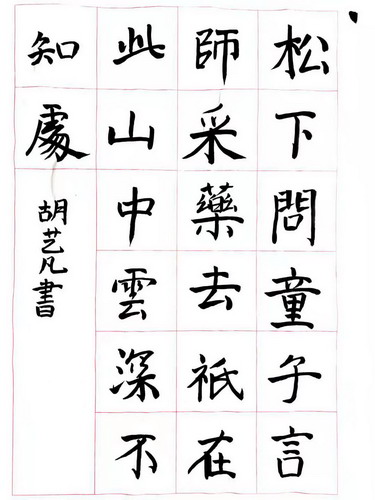 松下問童子言
師采藥去祇在
此山中雲深不
知處
胡艺凡書